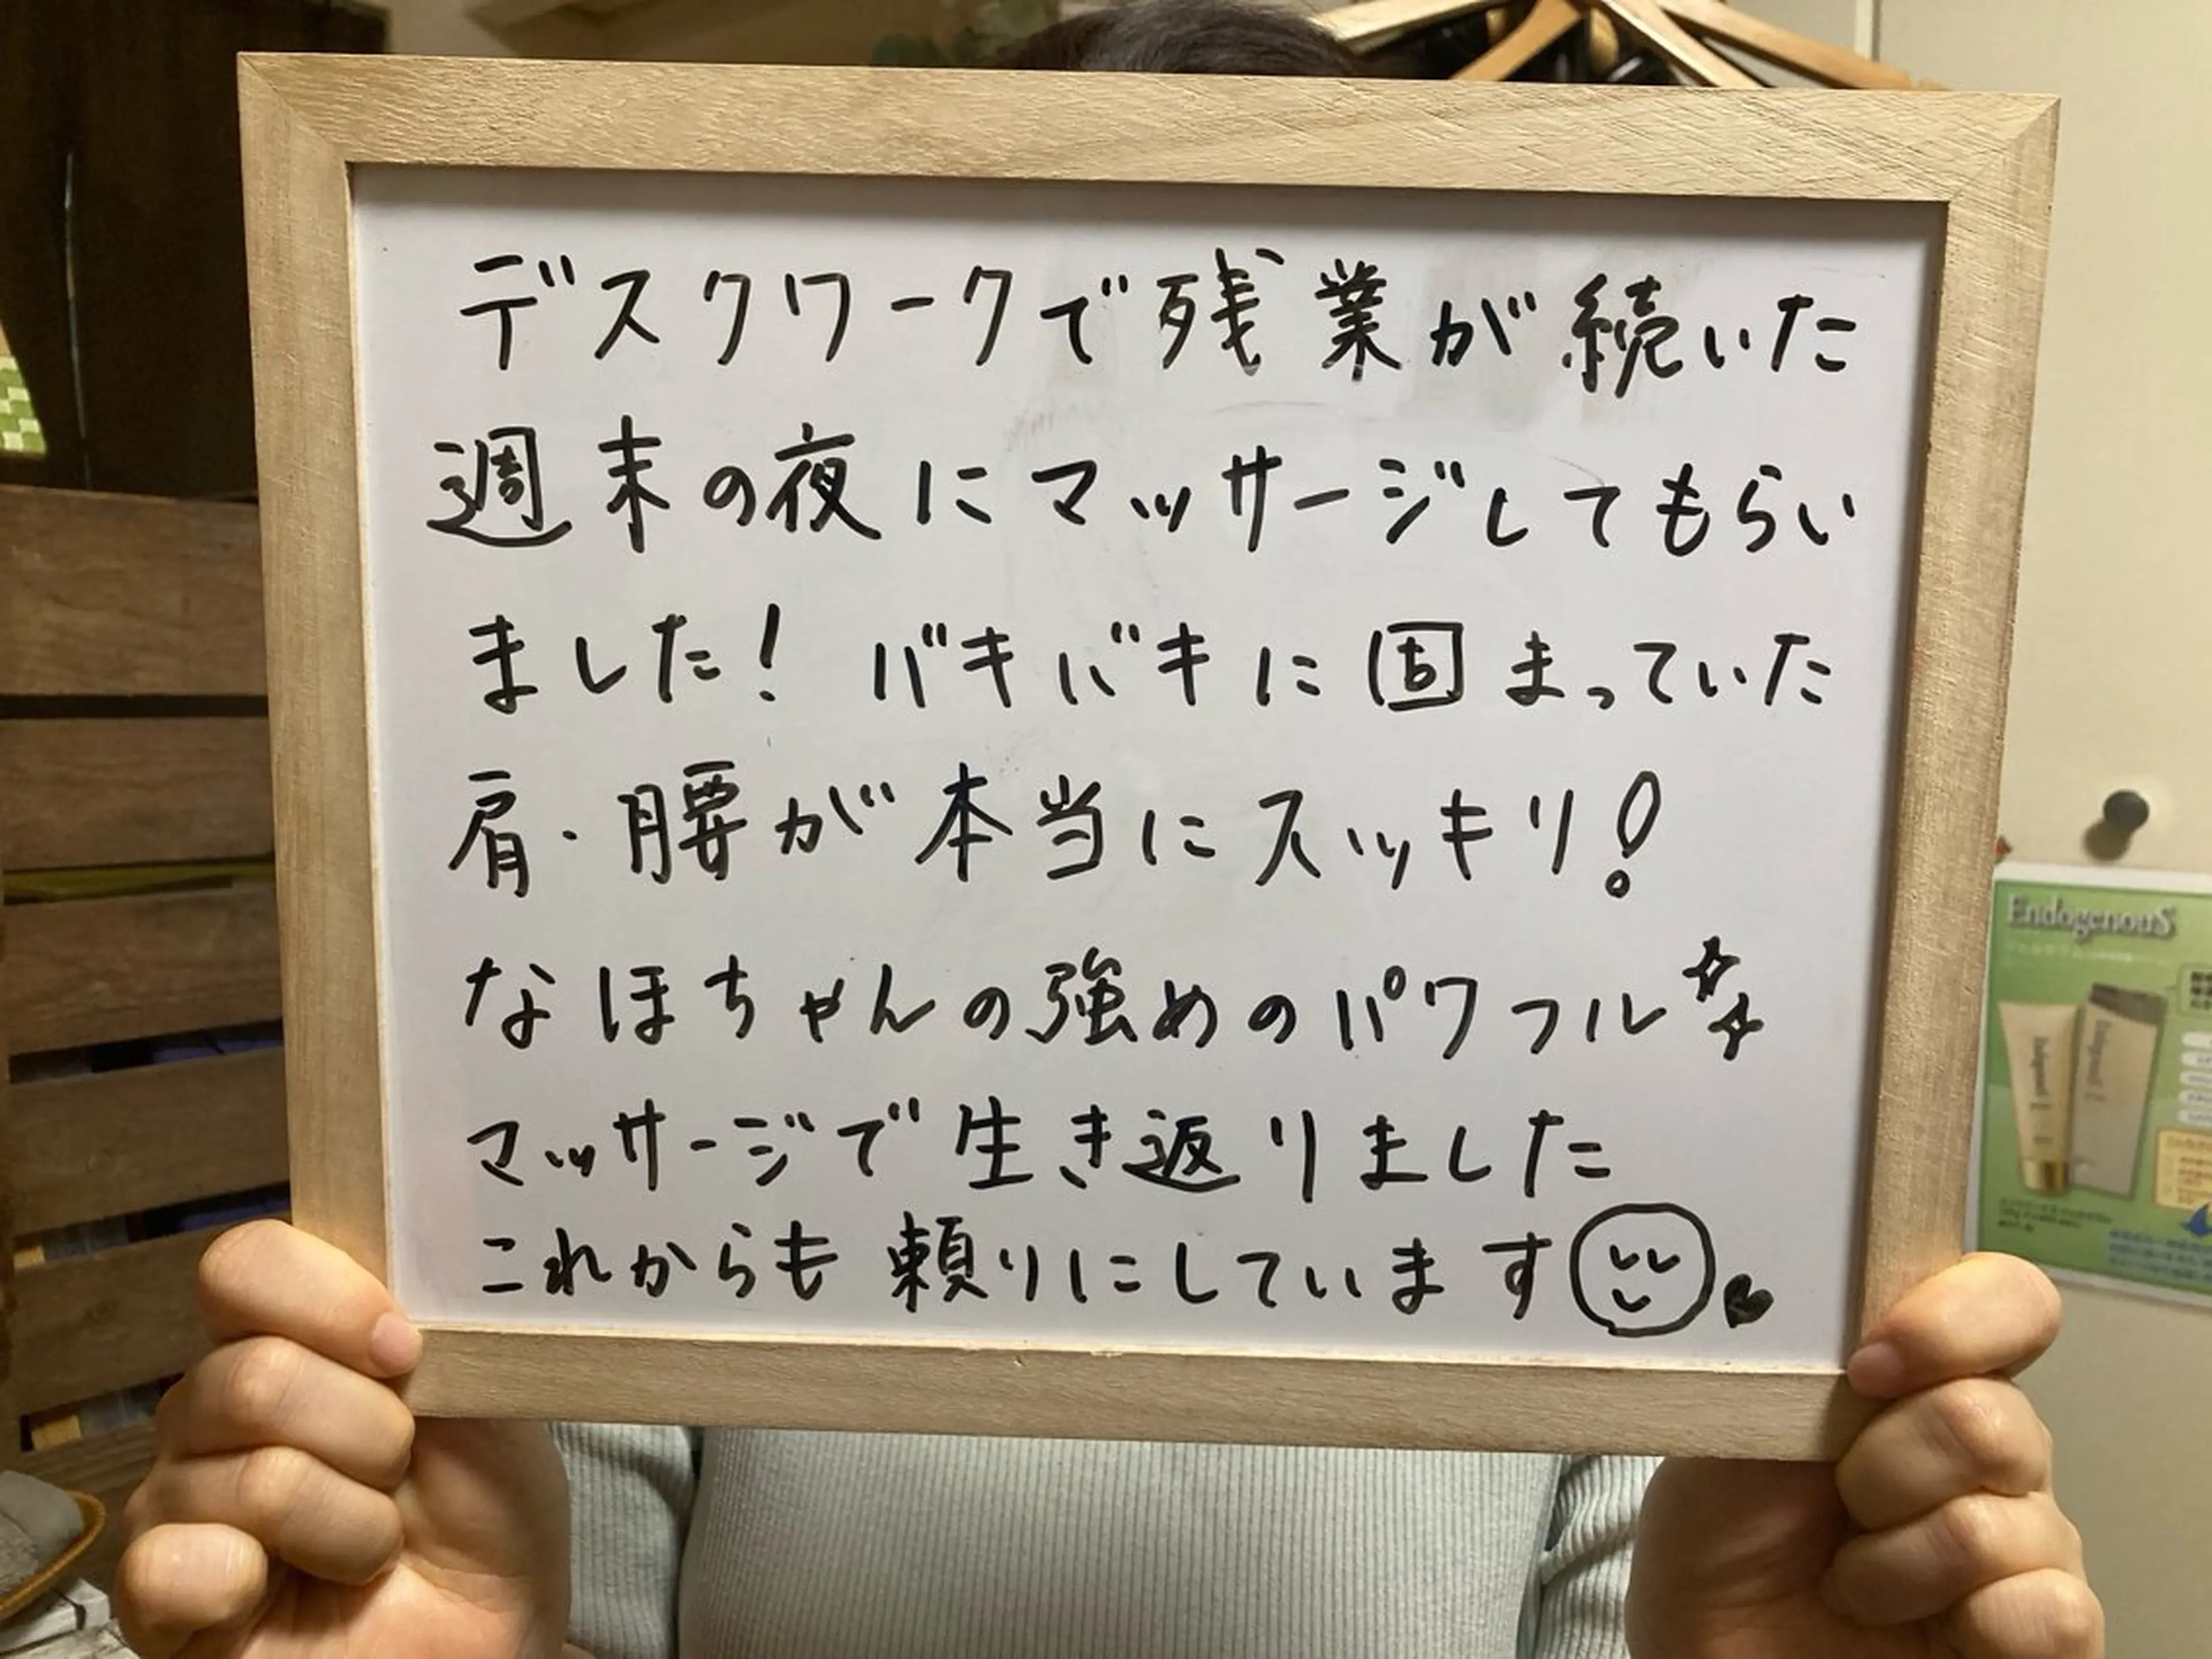 デスクワークで残業が続いた
週末の夜にマッサージしてもらい
ました! バキバキに固まっていた
肩・腰が本当にスッキリ!
なほちゃんの強めのパワフル
マッサージで生き返りました
これからも頼りにしています
EndogenouS